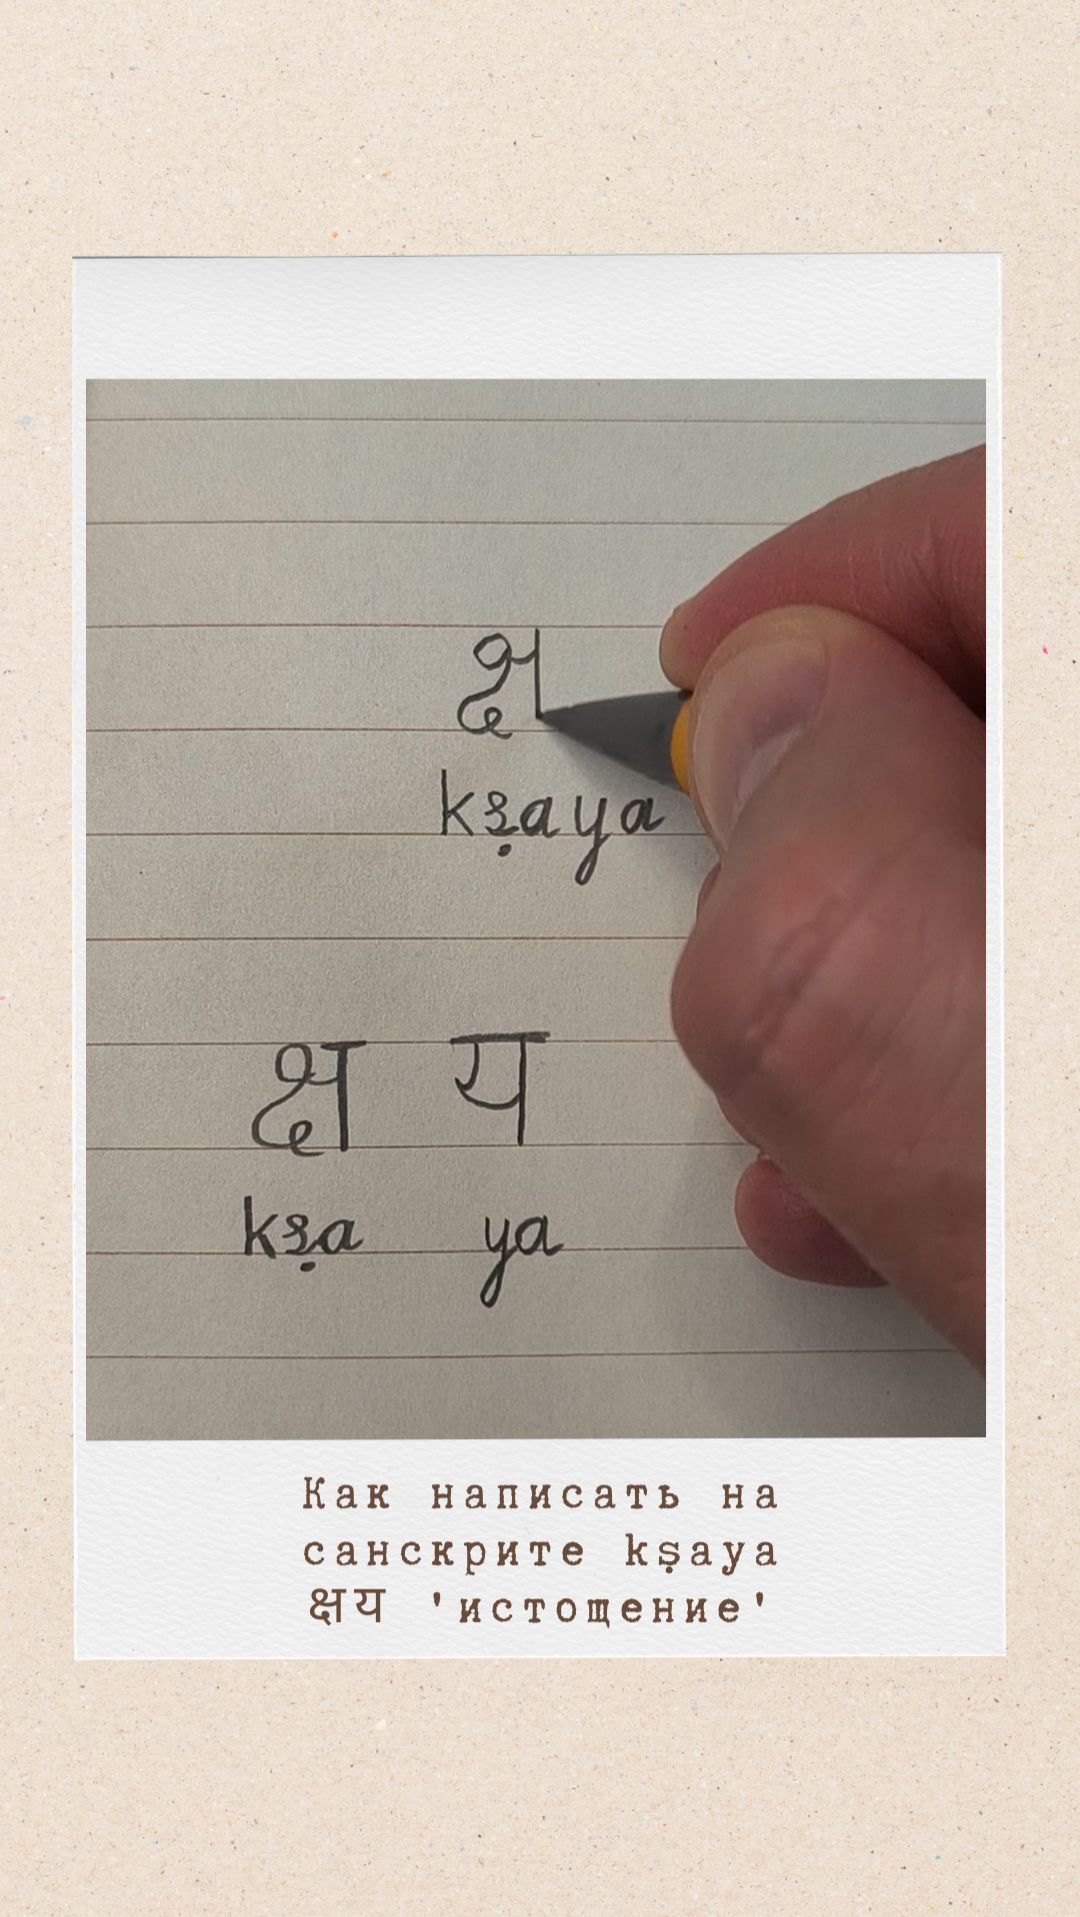 क्ष
kṣaya
क्ष य
kṣa ya
Как написать на
санскрите kṣaya
क्षय 'истощение'